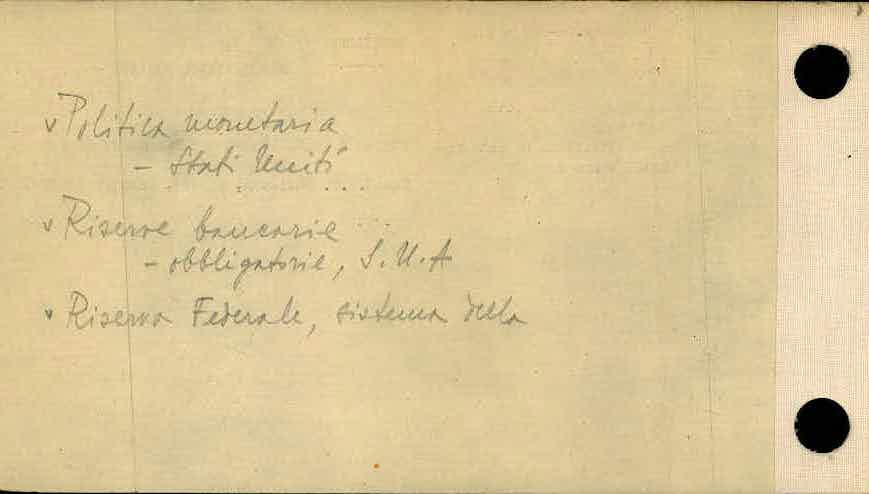 v Politica monetaria
- Stati Uniti
v Riserve bancarie
- obbligatorie, S.U.A
v Riserva Federale, sistema della